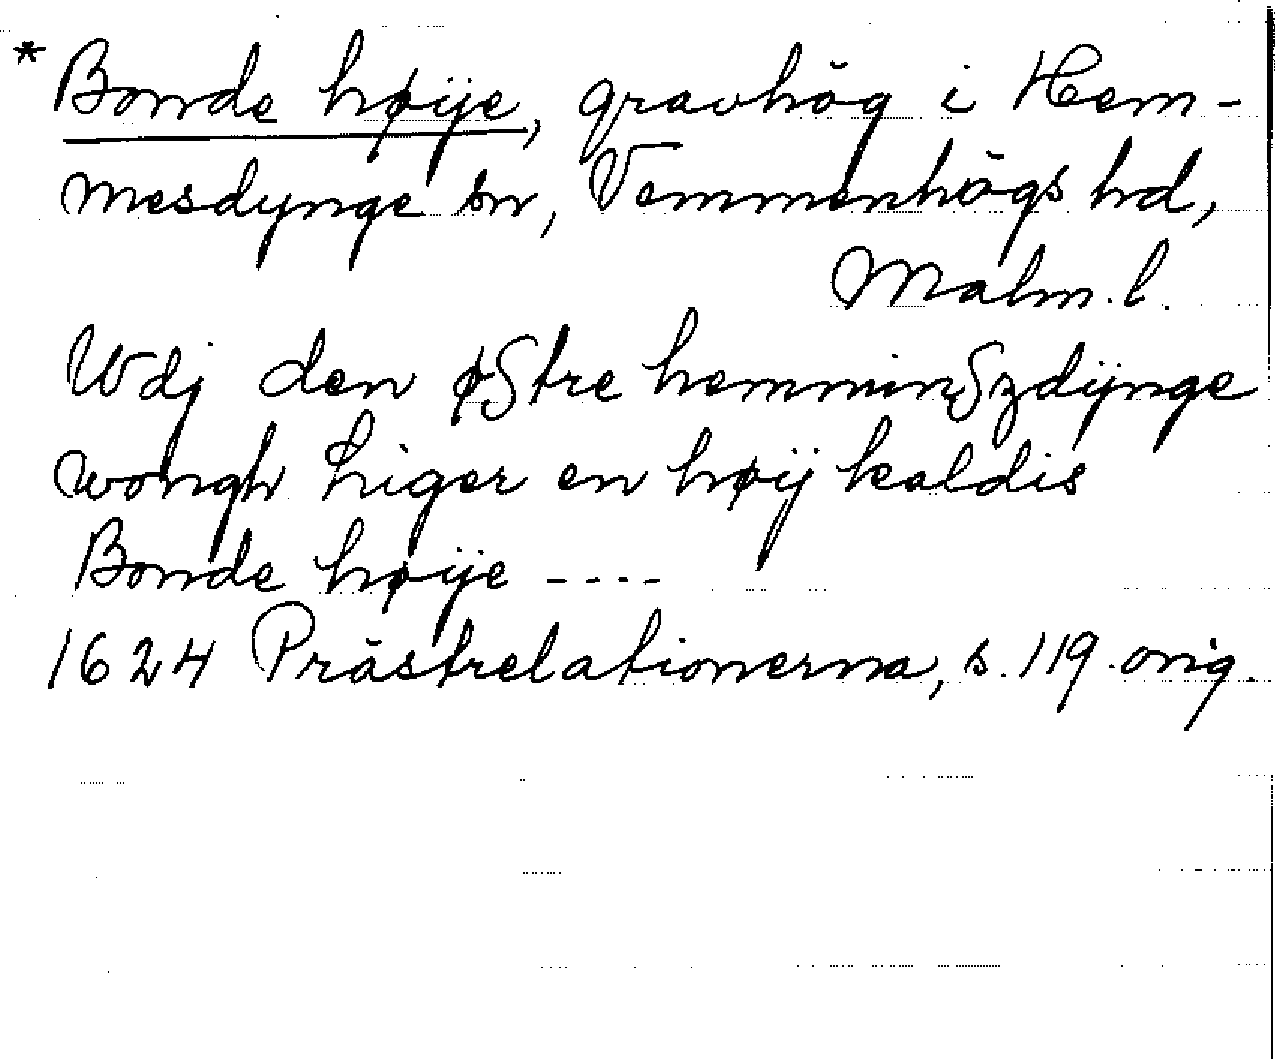 * Bonde høije, gravhög i Hem-
mesdynge sn, Vemmenhögs hd,
Malm. l.
Wdj den østre hemminszdÿnge
wongh liger en høÿ kaldis
Bonde høÿe ----
1624 Prästrelationerna, s. 119 orig.